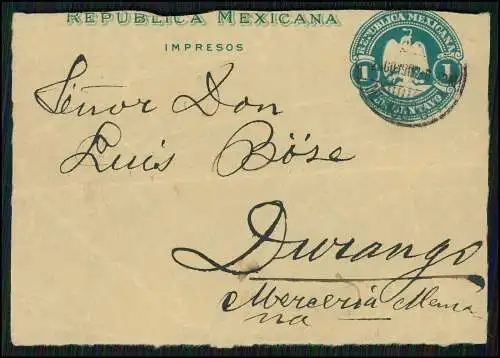 REPUBLICA MEXICANA
IMPRESOS
REPUBLICA MEXICANA
1 1
UN CENTAVO
Señor Don
Luis Böse
Durango
Mercería Alema
na